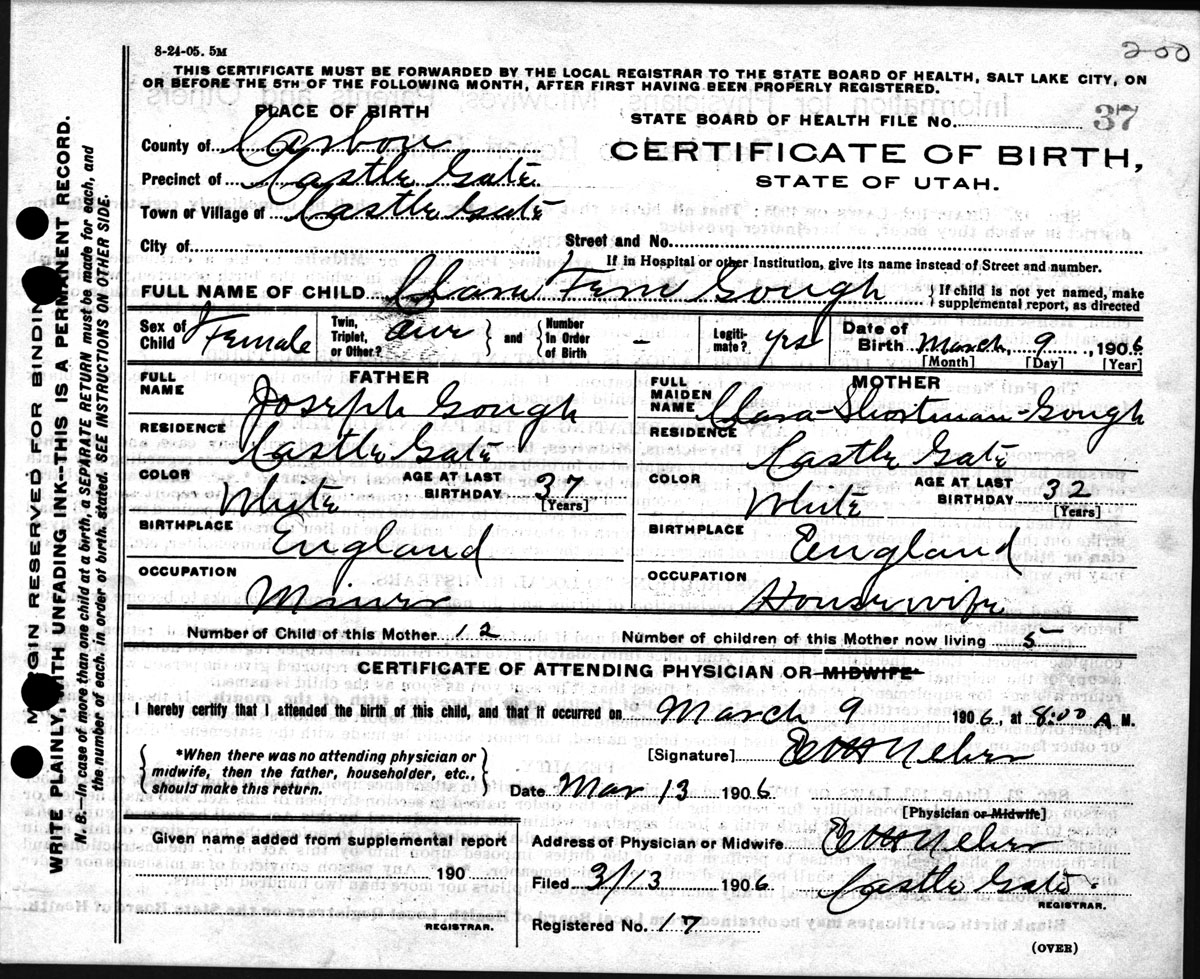 8-24-05. 5M
200
THIS CERTIFICATE MUST BE FORWARDED BY THE LOCAL REGISTRAR TO THE STATE BOARD OF HEALTH, SALT LAKE CITY, ON
OR BEFORE THE 5TH OF THE FOLLOWING MONTH, AFTER FIRST HAVING BEEN PROPERLY REGISTERED.
PLACE OF BIRTH
STATE BOARD OF HEALTH FILE NO. 37
County of Carbon
CERTIFICATE OF BIRTH,
Precinct of Castle Gate
STATE OF UTAH.
Town or Village of Castle Gate
City of
Street and No.
If in Hospital or other Institution, give its name instead of Street and number.
FULL NAME OF CHILD Clara Fern Gough { If child is not yet named, make
supplemental report, as directed
Sex of Child Female
Twin, Triplet, or Other?
and
Number In Order of Birth -
Legiti-mate? yes
Date of Birth March 9, 1906
[Month] [Day] [Year]
FATHER
FULL NAME Joseph Gough
RESIDENCE Castle Gate
COLOR White
AGE AT LAST BIRTHDAY 37
[Years]
BIRTHPLACE England
OCCUPATION Miner
MOTHER
FULL MAIDEN NAME Clara Shortman-Gough
RESIDENCE Castle Gate
COLOR White
AGE AT LAST BIRTHDAY 32
[Years]
BIRTHPLACE England
OCCUPATION Housewife
Number of Child of this Mother 12
Number of children of this Mother now living 5
CERTIFICATE OF ATTENDING PHYSICIAN OR MIDWIFE*
I hereby certify that I attended the birth of this child, and that it occurred on March 9 1906, at 8:00 A. M.
{ *When there was no attending physician or
midwife, then the father, householder, etc.,
should make this return. }
[Signature]
Date Mar 13 1906
[Physician or Midwife]
Given name added from supplemental report
190
REGISTRAR.
Address of Physician or Midwife
Filed 3/13 1906 Castle Gate
REGISTRAR.
Registered No. 17
(OVER)
MARGIN RESERVED FOR BINDING
WRITE PLAINLY, WITH UNFADING INK--THIS IS A PERMANENT RECORD.
N. B.--In case of more than one child at a birth, a SEPARATE RETURN must be made for each, and
the number of each, in order of birth, stated. SEE INSTRUCTIONS ON OTHER SIDE.